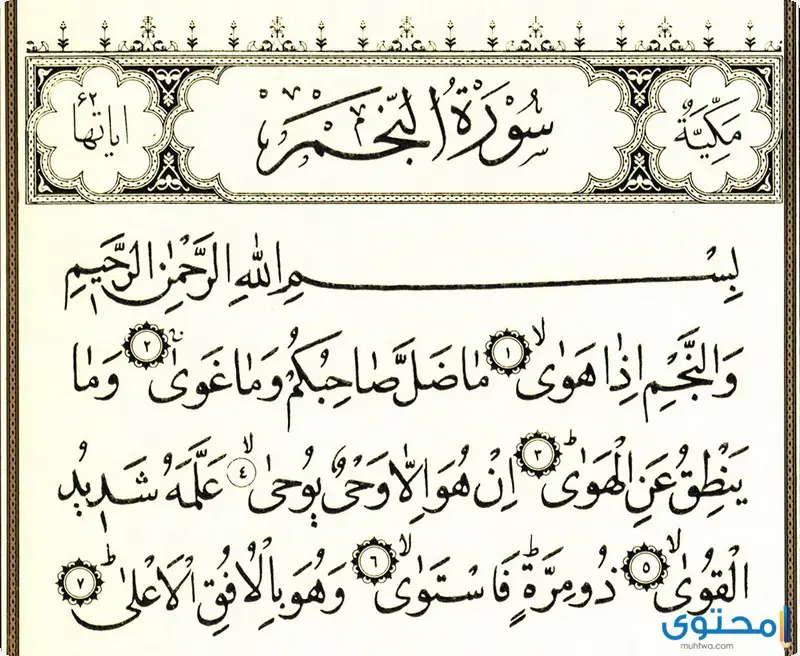 مَكِّيَّةٌ
سُورَةُ النَّجْمِ
اٰيَاتُهَا ٦٢
بِسْمِ اللّٰهِ الرَّحْمٰنِ الرَّحٖيمِ
وَالنَّجْمِ اِذَا هَوٰىۙ ١ مَا ضَلَّ صَاحِبُكُمْ وَمَا غَوٰىۚ ٢ وَمَا
يَنْطِقُ عَنِ الْهَوٰىۜ ٣ اِنْ هُوَ اِلَّا وَحْىٌ يُوحٰىۙ ٤ عَلَّمَهُ شَدٖيدُ
الْقُوٰىۙ ٥ ذُو مِرَّةٍۜ فَاسْتَوٰىۙ ٦ وَهُوَ بِالْاُفُقِ الْاَعْلٰىۜ ٧
محتوى
muhtwa.com